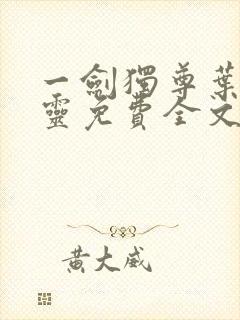 一劍獨尊葉
靈免費全文
黃大威